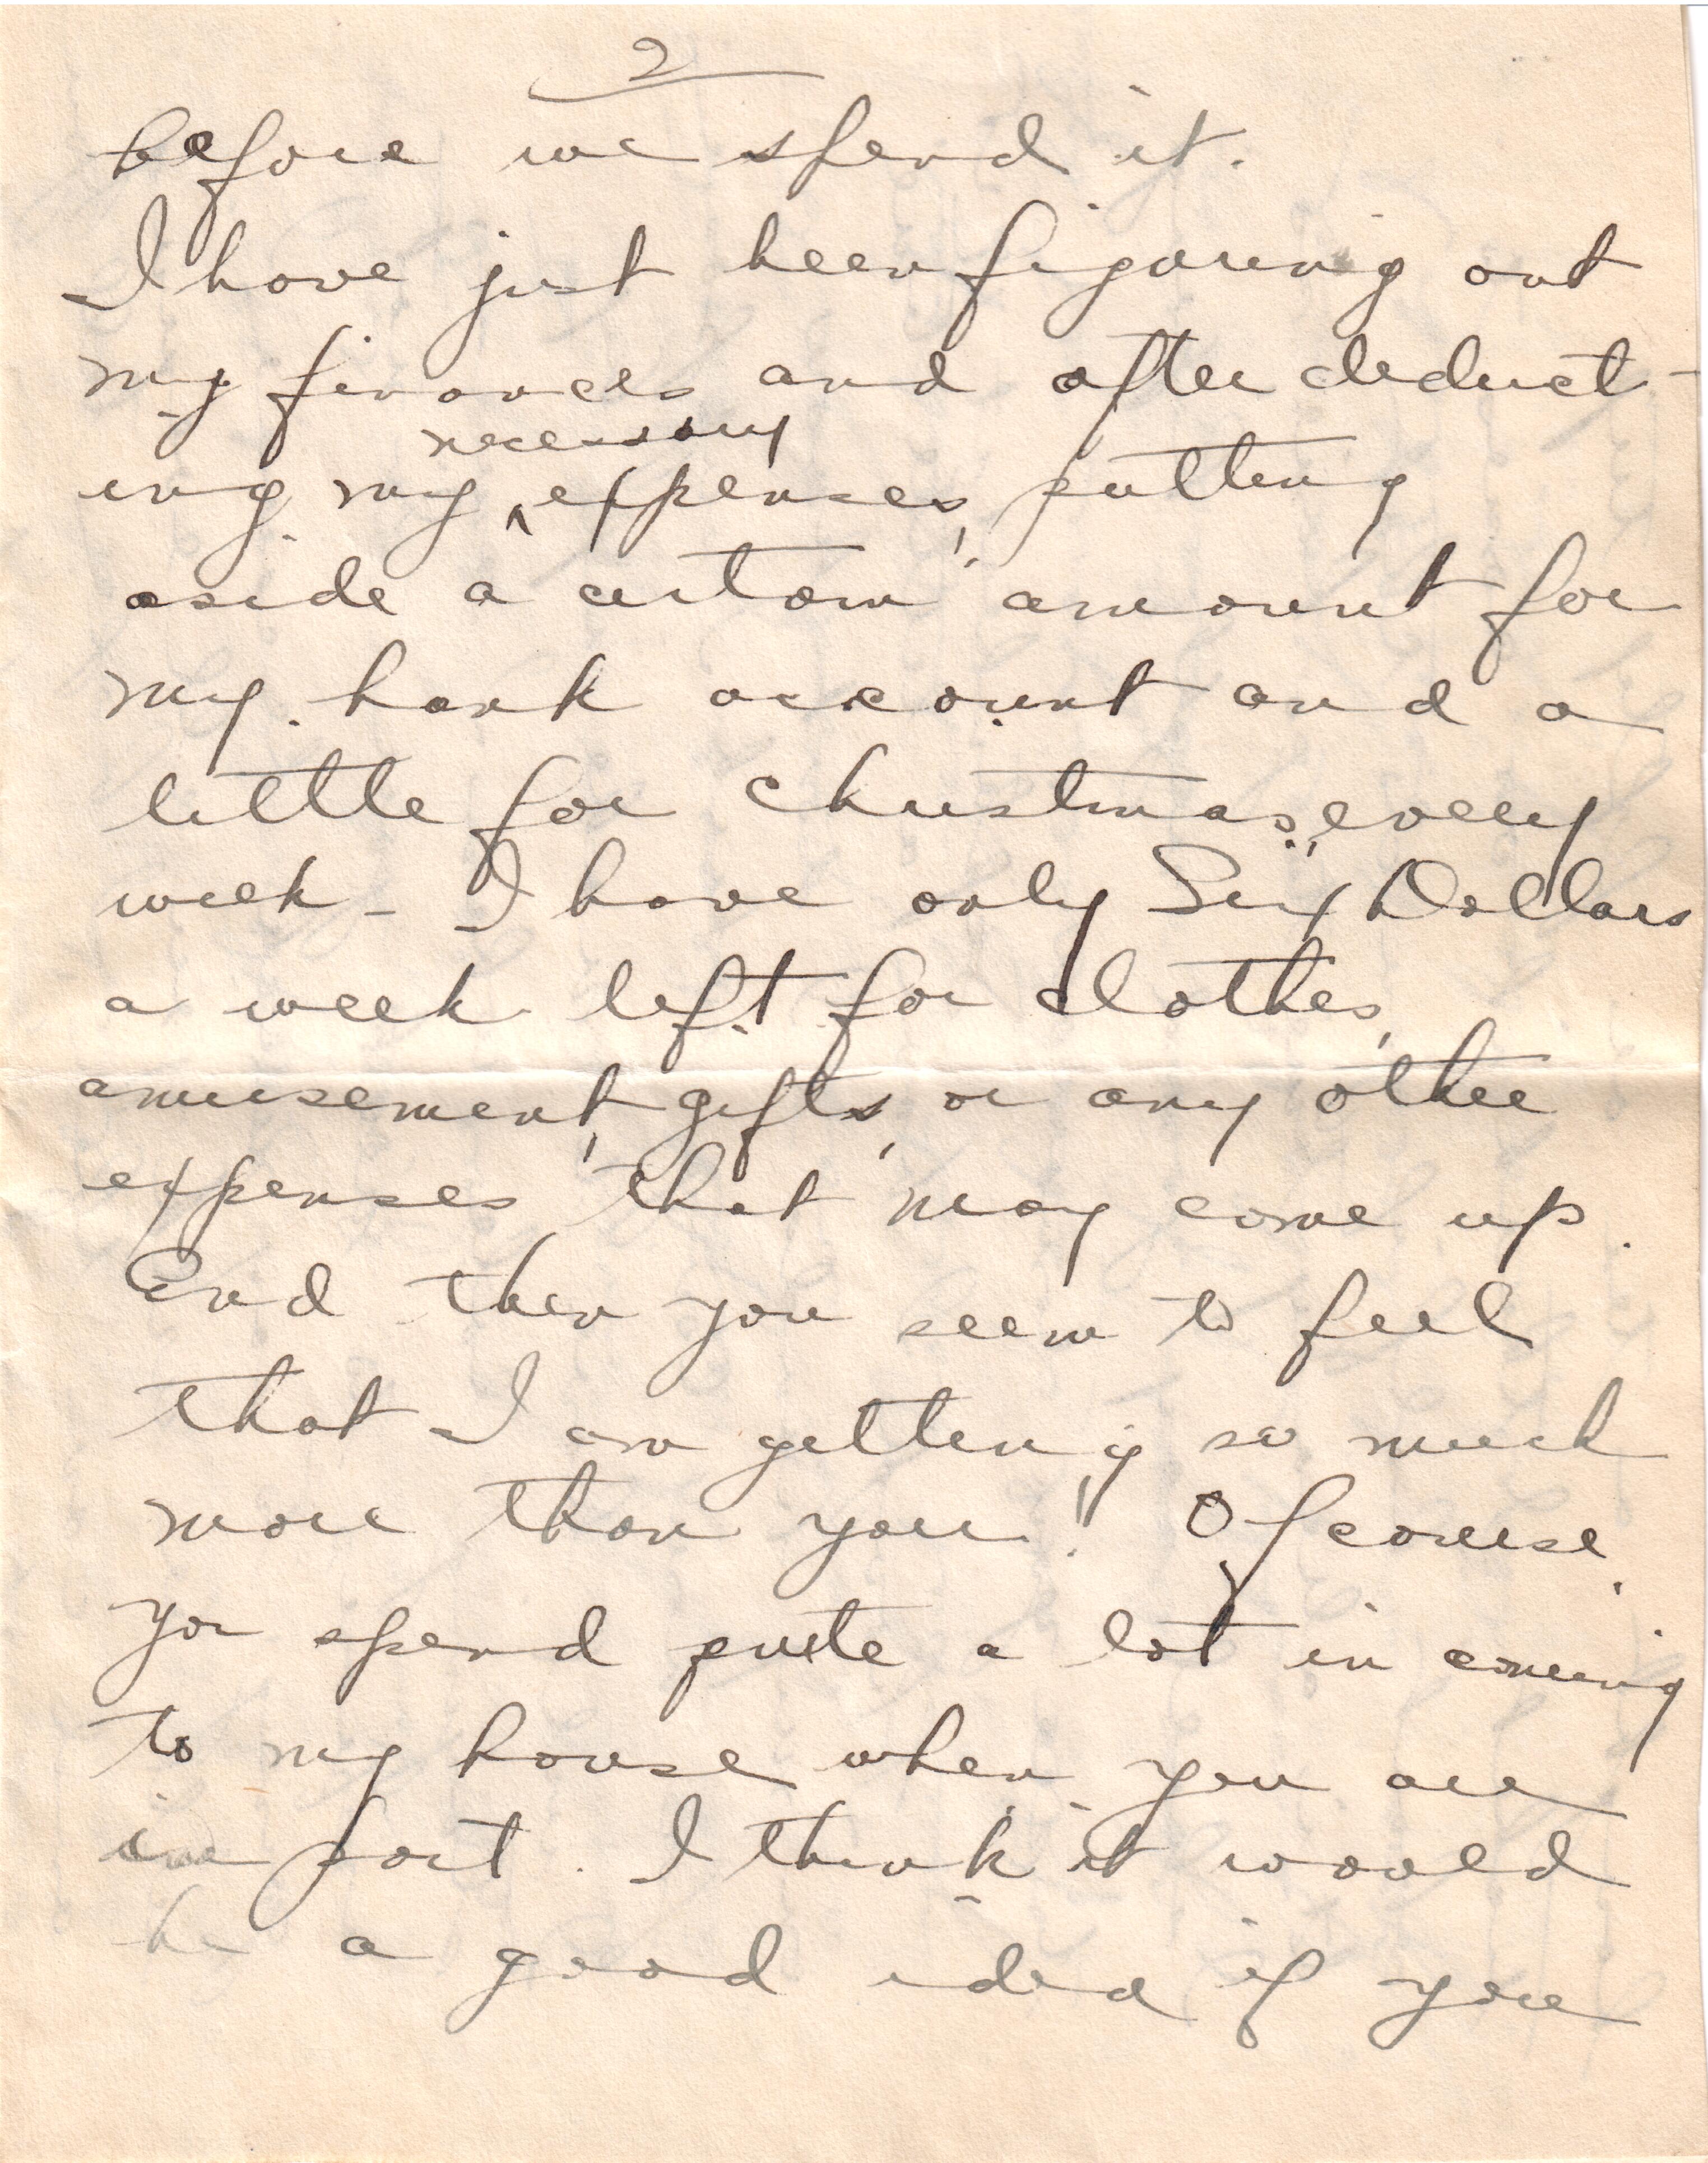 2
before we spend it.
I have just been figuring out
my finances and after deduct-
necessary
ing my ^ expenses, putting
aside a certain amount for
my bank account and a
little for Christmas, every
week - I have only Six Dollars
a week left for clothes,
amusement, gifts, or any other
expenses that may come up.
And then you seem to feel
that I am getting so much
more than you! Of course,
you spend quite a lot in coming
to my house when you are
in port. I think it would
be a good idea if you